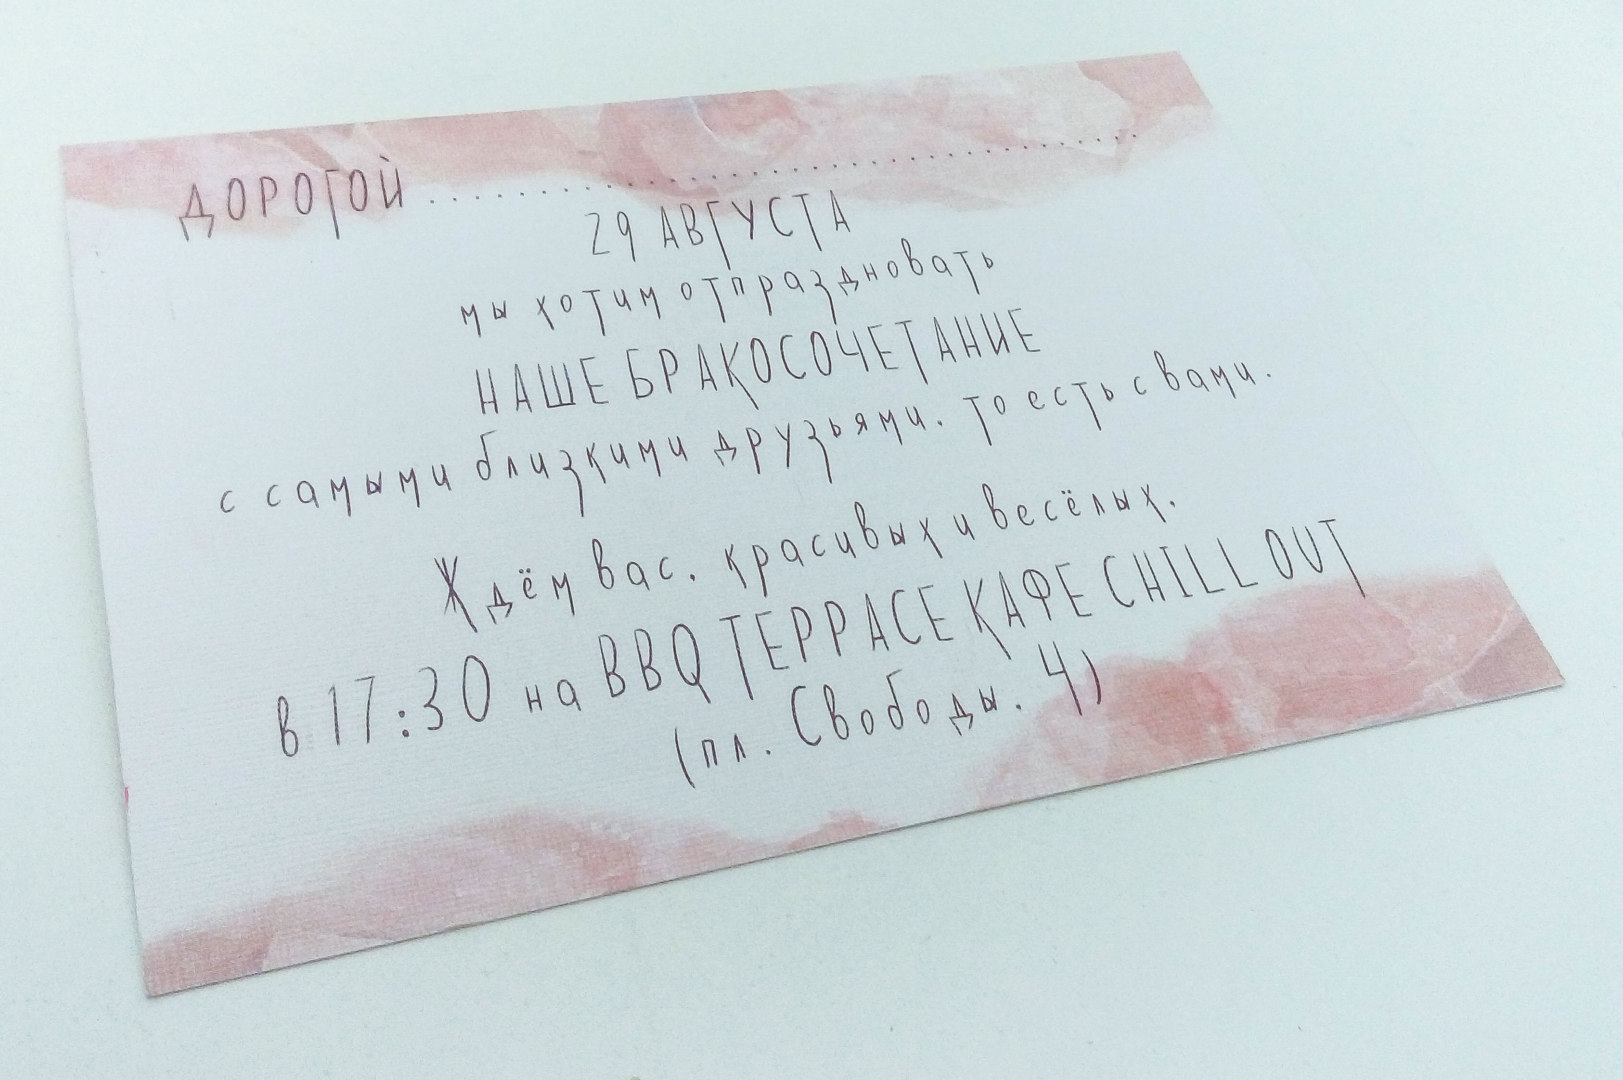 ДОРОГОЙ ........................................
29 АВГУСТА
мы хотим отпраздновать
НАШЕ БРАКОСОЧЕТАНИЕ
с самыми близкими друзьями. то есть с вами.
Ждём вас. красивых и весёлых.
в 17:30 на BBQ ТЕРРАСЕ КАФЕ CHILL OUT
(пл. Свободы. 4)